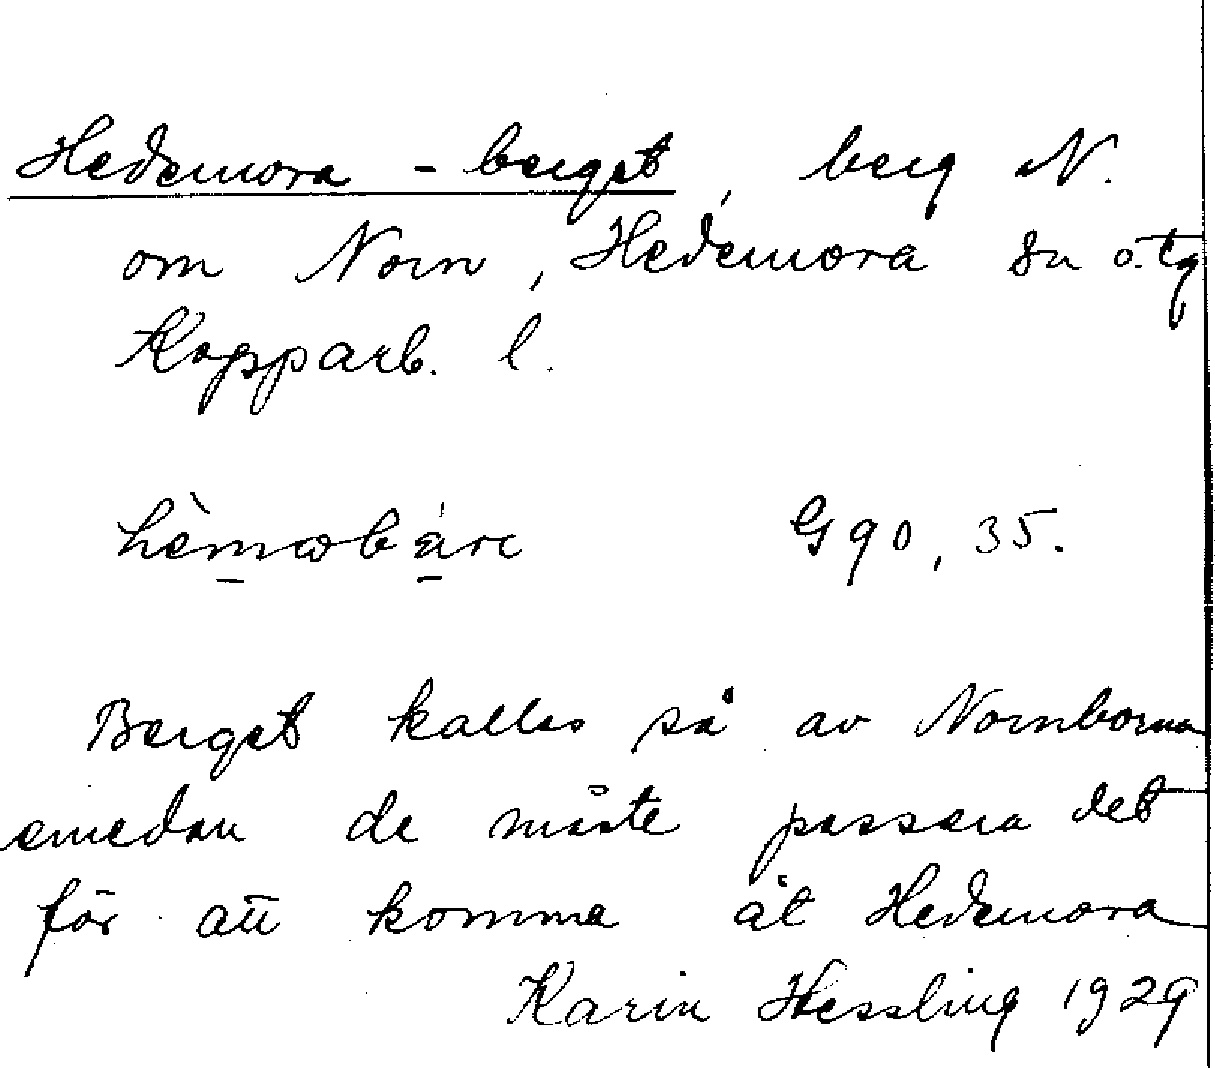 Hedemora - berget, berg N.
om Norn, Hedemora sn o. tg
Kopparb. l.
G 90, 35.
Berget kallas så av Nornborna
emedan de måste passera det
för att komma åt Hedemora
Karin Hessling 1929